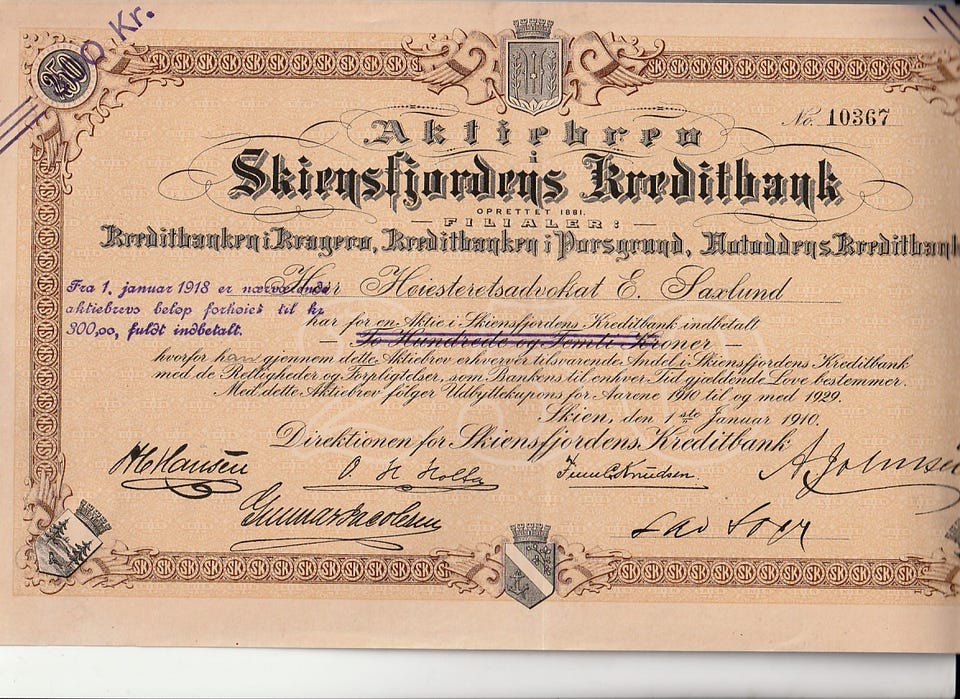 250
300 Kr.
No. 10367
Aktiebrev
i
Skiensfjordens Kreditbank
OPRETTET 1881.
FILIALER:
Kreditbanken i Kragerø, Kreditbanken i Porsgrund, Notoddens Kreditbank
Fra 1. januar 1918 er nærværende
aktiebrevs beløp forhøiet til kr.
300,00, fuldt indbetalt.
Herr Høiesteretsadvokat E. Saxlund
har for en Aktie i Skiensfjordens Kreditbank indbetalt
— To Hundrede og Femti Kroner —
hvorfor han gjennem dette Aktiebrev erhverver tilsvarende Andel i Skiensfjordens Kreditbank
med de Rettigheder og Forpligtelser, som Bankens til enhver Tid gjældende Love bestemmer.
Med dette Aktiebrev følger Udbyttekupons for Aarene 1910 til og med 1929.
Skien, den 1ste Januar 1910.
Direktionen for Skiensfjordens Kreditbank
H Hansen
O H Holta
Knudsen
Gunnar Jacobsen